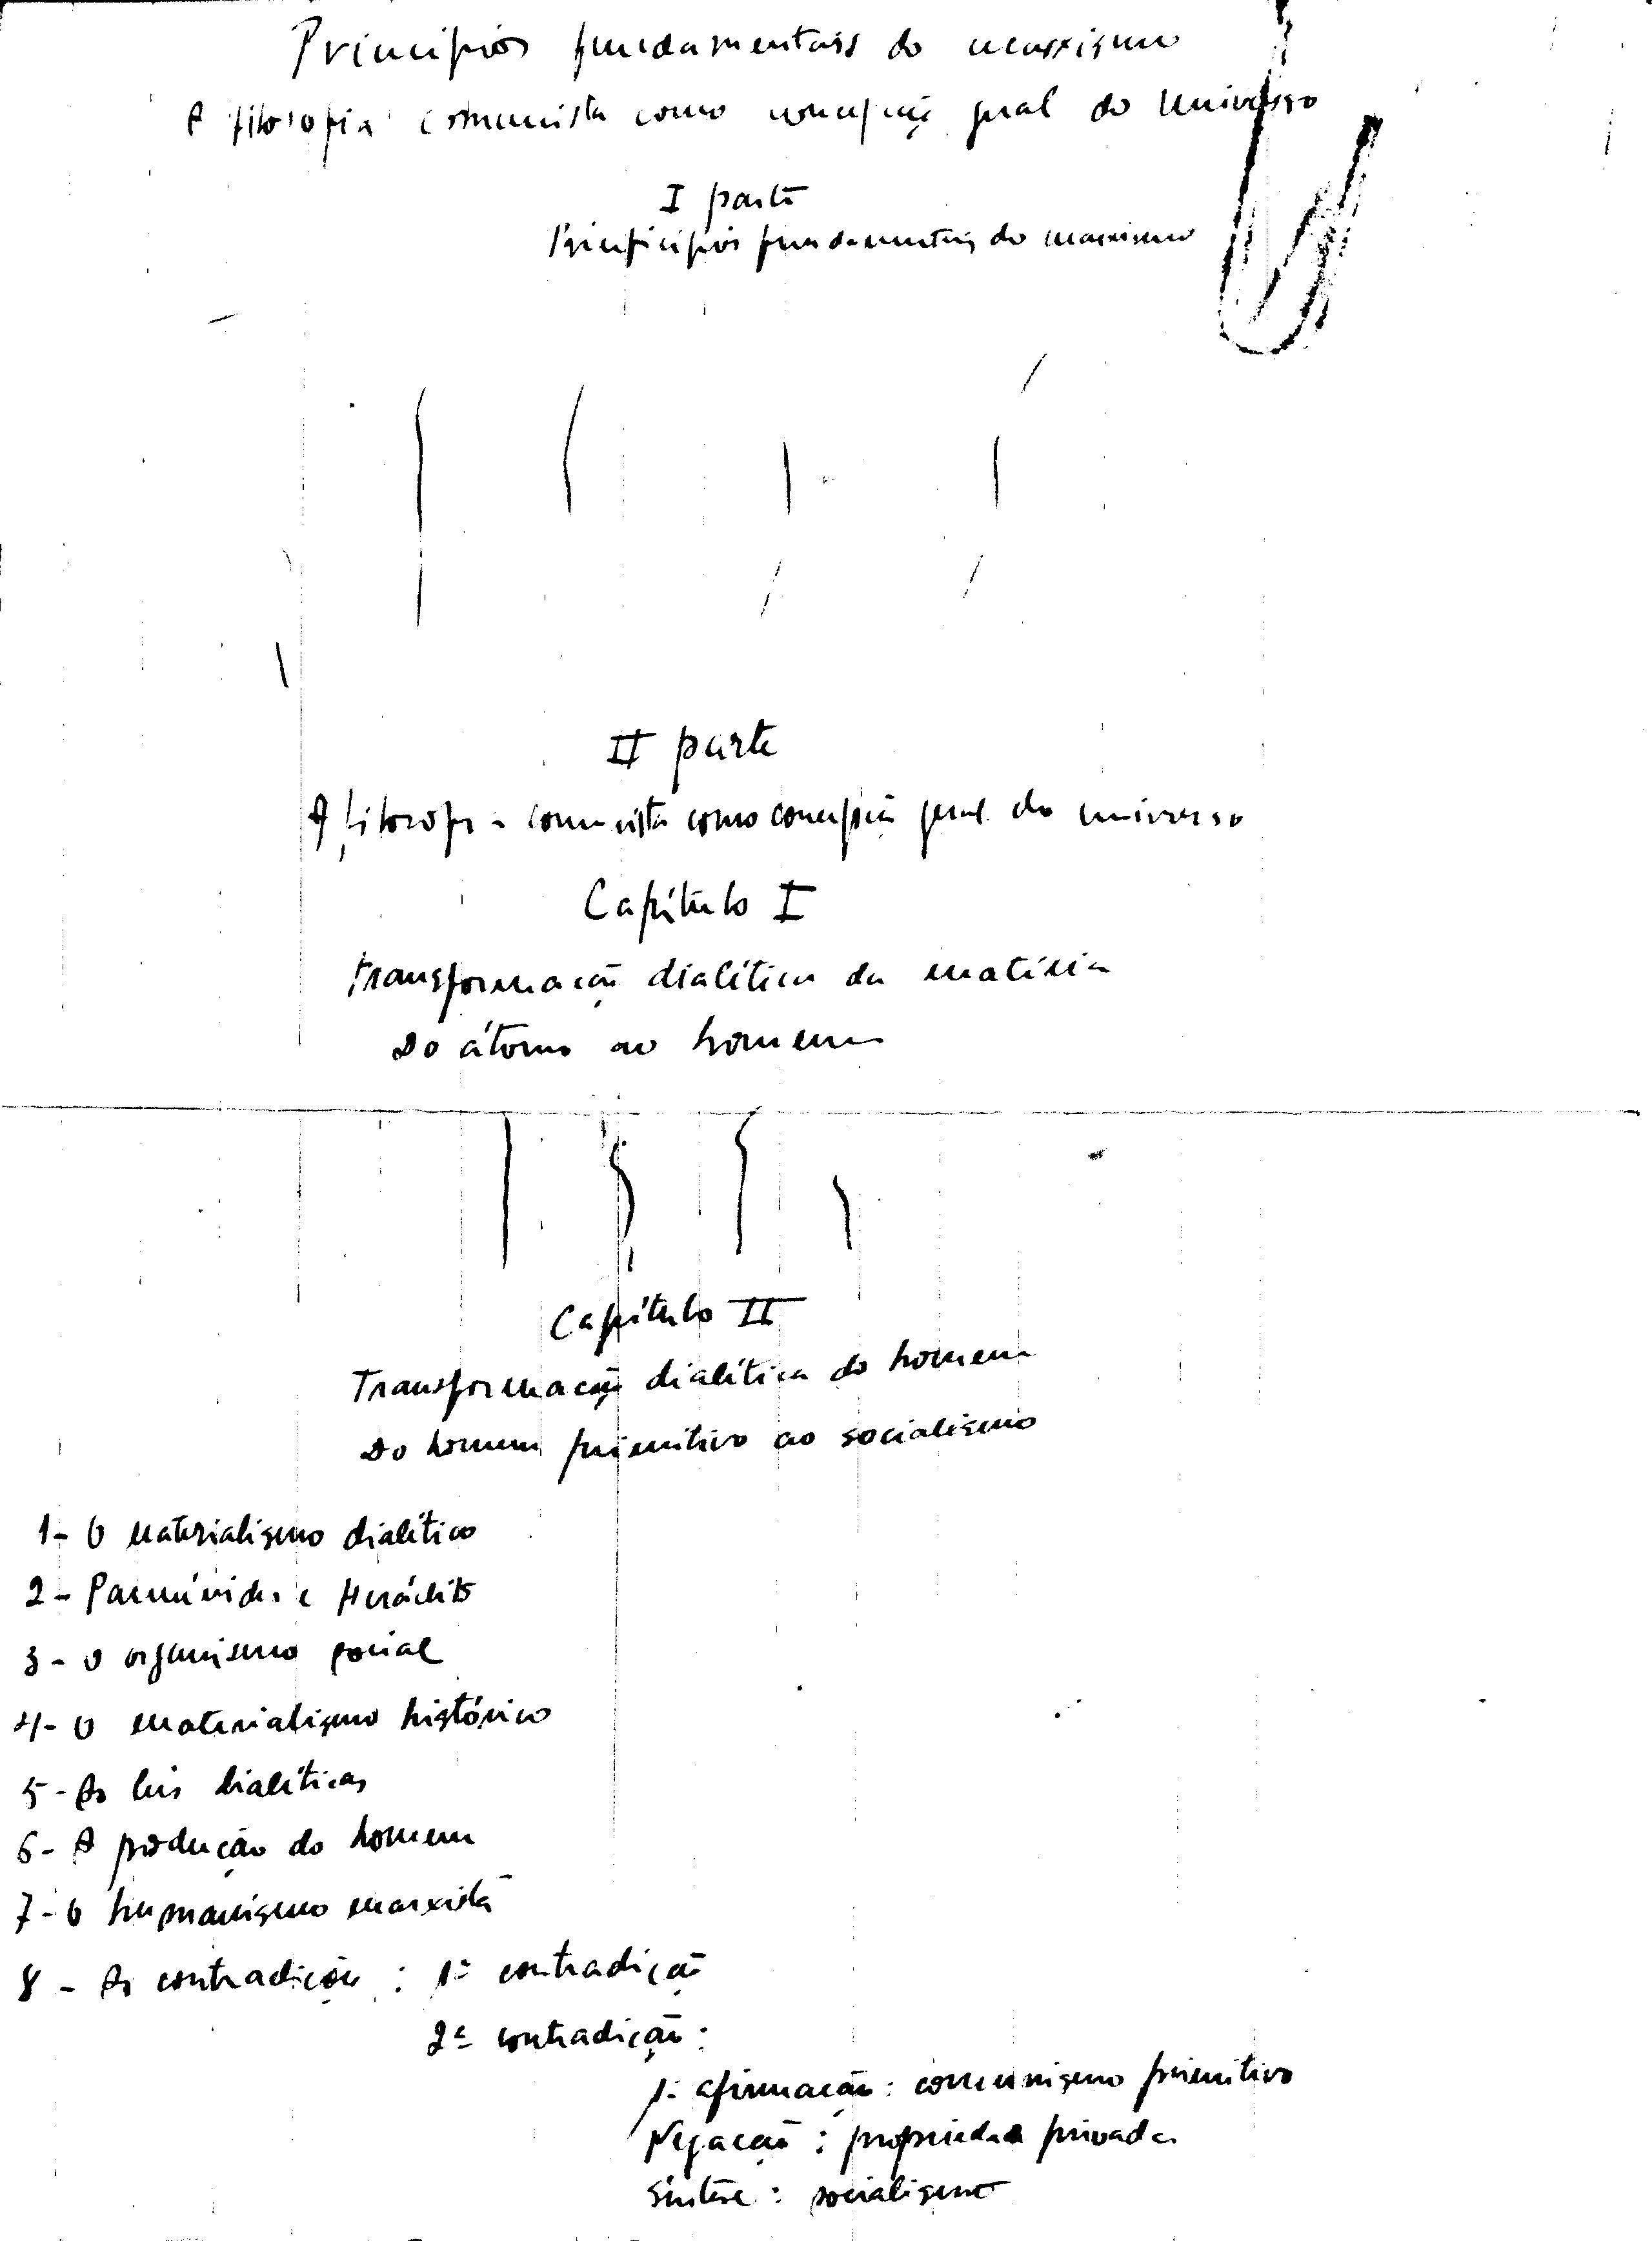 Princípios fundamentais do marxismo
A filosofia comunista como concepção geral do universo
I parte
Princípios fundamentais do marxismo
II parte
A filosofia comunista como concepção geral do universo
Capítulo I
Transformação dialética da matéria
Do átomo ao homem
Capítulo II
Transformação dialética do homem
Do homem primitivo ao socialismo
1- O materialismo dialético
2- Parmênides e Heráclito
3- O organismo social
4- O materialismo histórico
5- As leis dialéticas
6- A produção do homem
7- O humanismo marxista
8- As contradições: 1ª contradição
2ª contradição:
1ª afirmação: comunismo primitivo
Negação: propriedade privada
Síntese: socialismo